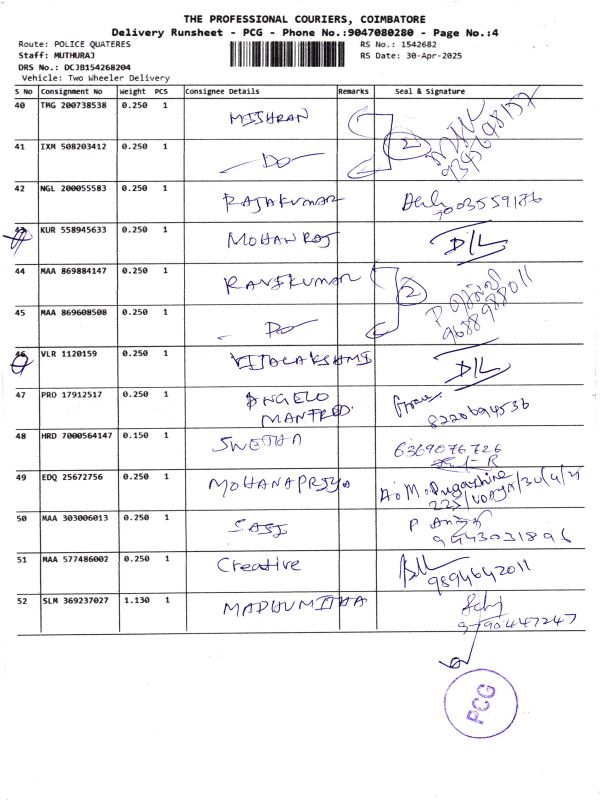 THE PROFESSIONAL COURIERS, COIMBATORE
Delivery Runsheet - PCG - Phone No.:9047080280 - Page No.:4
Route: POLICE QUATERES RS No.: 1542682
Staff: MUTHURAJ RS Date: 30-Apr-2025
DRS No.: DCJB154268204
Vehicle: Two Wheeler Delivery
S No Consignment No Weight PCS Consignee Details Remarks Seal & Signature
40 TMG 200738538 0.250 1 MISHRAN 2
41 IXM 508203412 0.250 1 Do
42 NGL 200055583 0.250 1 RAJAKUMAR 7003559176
43 KUR 558945633 0.250 1 MOHANRAJ D/L
44 MAA 869884147 0.250 1 RAVIKUMAR 2 9688988011
45 MAA 869608508 0.250 1 Do
46 VLR 1120159 0.250 1 VIJALAKSHMI D/L
47 PRO 17912517 0.250 1 ANGELO MANFRED 8220694536
48 HRD 7000564147 0.150 1 SWETHA 6369076726
49 EDQ 25672756 0.250 1 MOHANAPRIYA A.M.
50 MAA 303006013 0.250 1 SASI 9443031896
51 MAA 577486002 0.250 1 Creative 9894642011
52 SLM 369237027 1.130 1 MADHUMITHA 9790447247
PCG